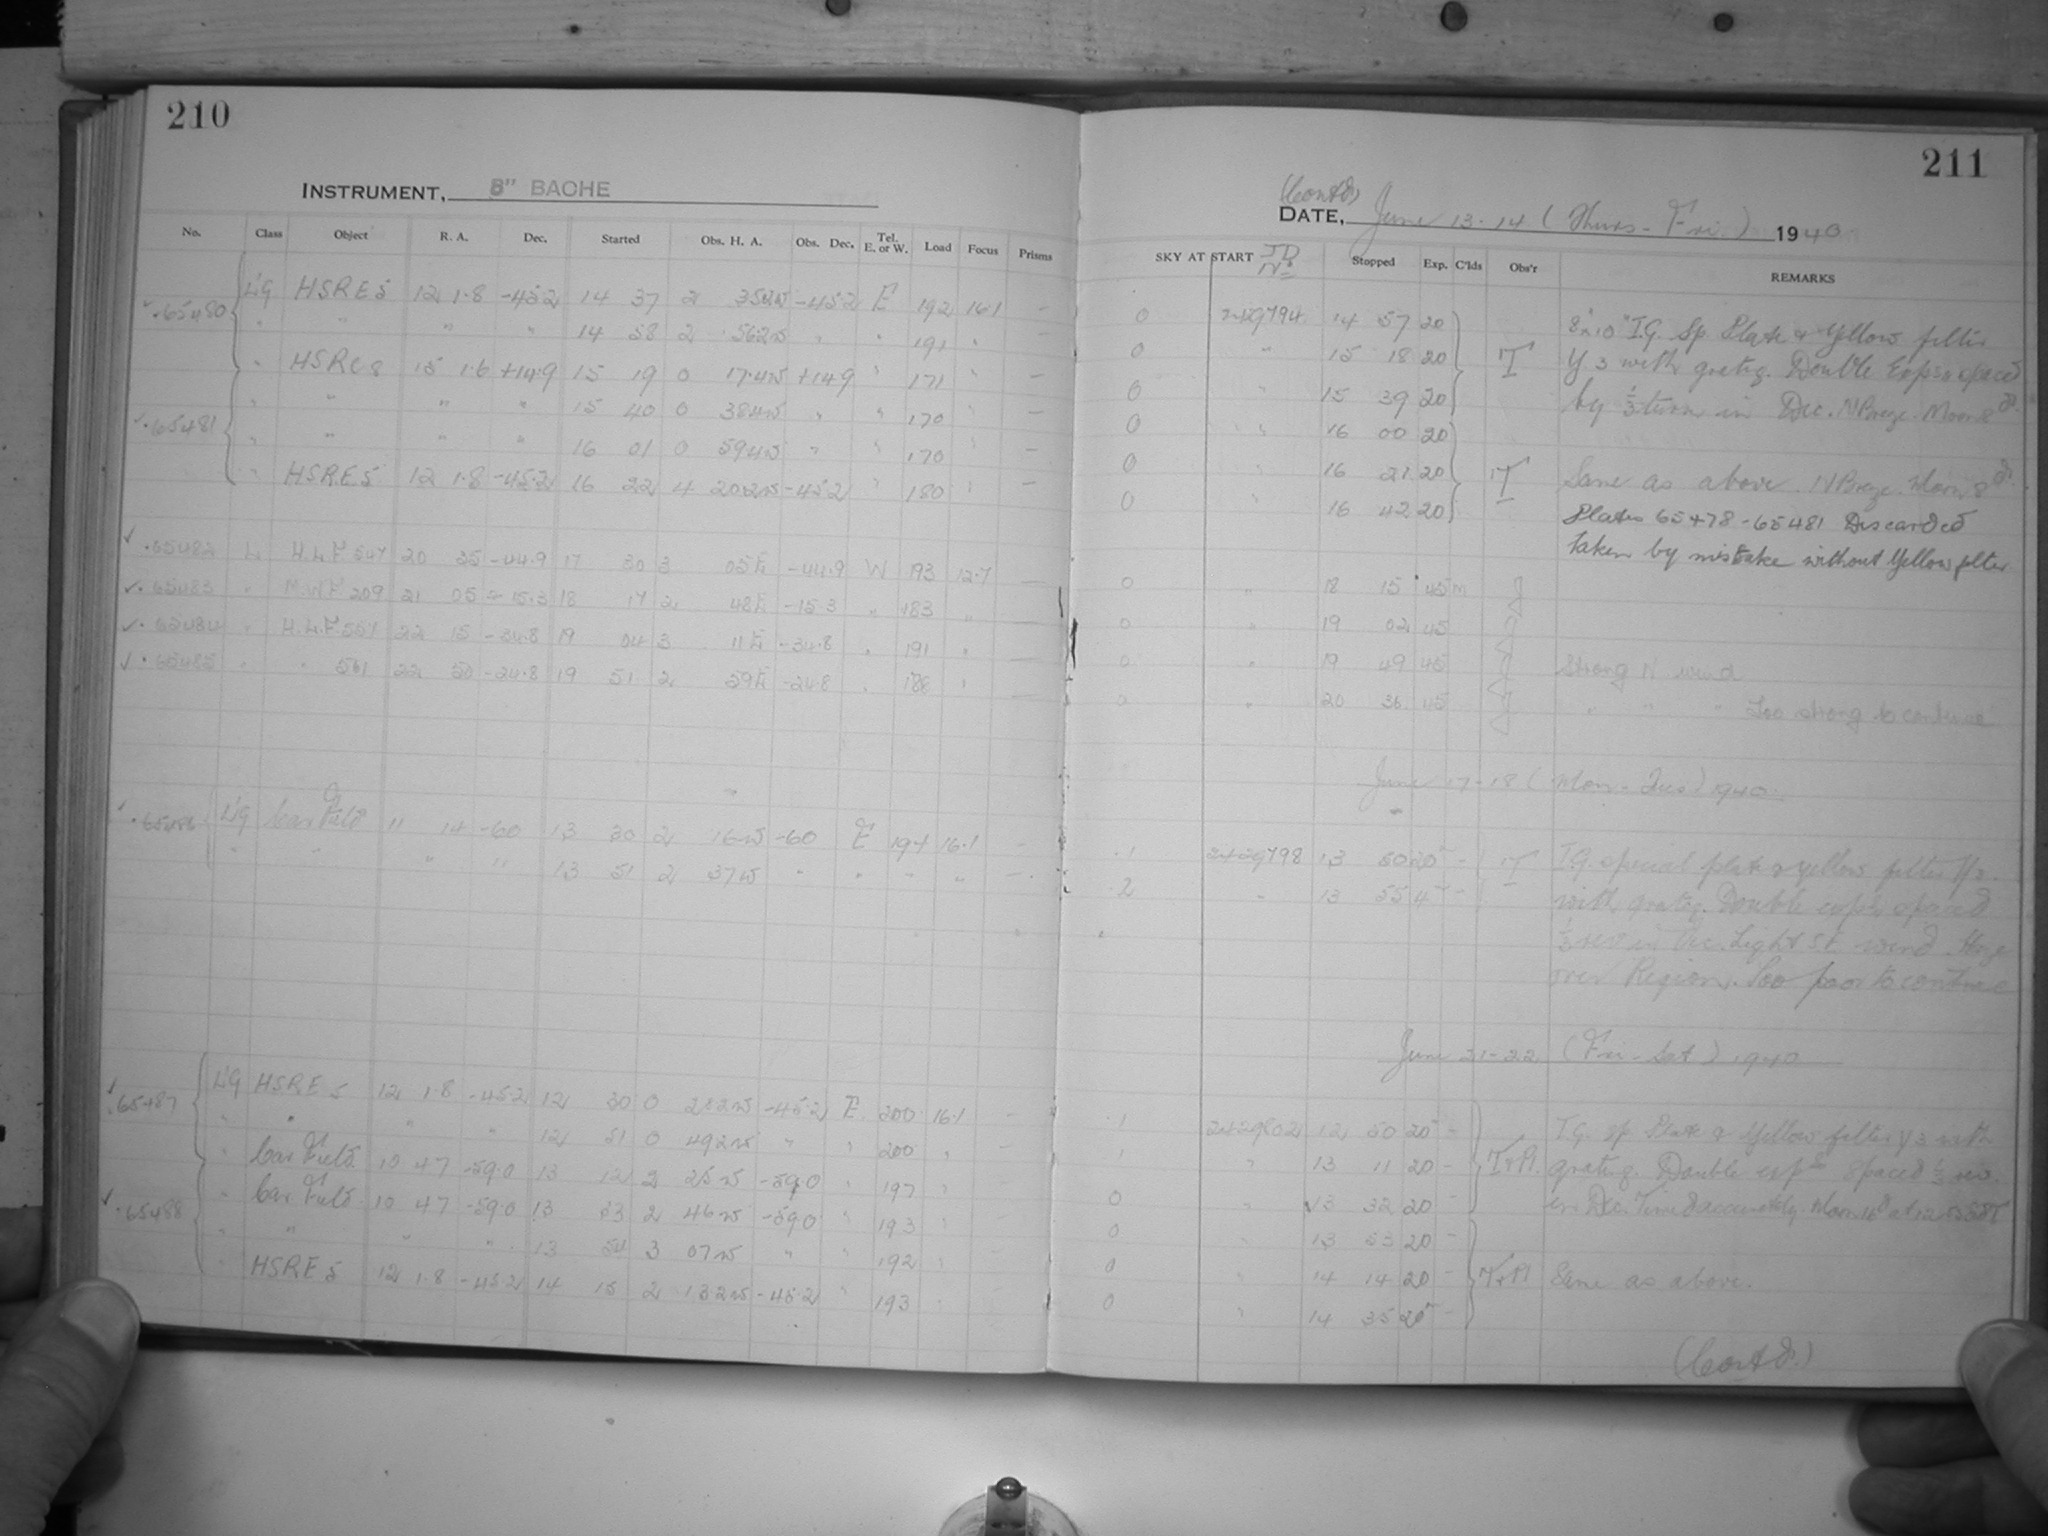 210
INSTRUMENT, 8" BACHE
No. Class Object R. A. Dec. Started Obs. H. A. Obs. Dec. Tel. E. or W. Load Focus Prisms
65480 L'G HSRE5 12 1.8 -45.2 14 37 2 35.2W -45.2 E 192 16.1 –
" " " " 14 58 2 56.2W " " 191 " –
" HSRC8 15 1.6 +14.9 15 19 0 17.4W +14.9 " 171 " –
65481 " " " " 15 40 0 38.4W " " 170 " –
" " " " 16 01 0 59.4W " " 170 " –
" HSRE5 12 1.8 -45.2 16 22 4 20.2W -45.2 " 180 " –
65482 L 20 35 -44.9 17 30 3 05E -44.9 W 193 12.7 –
65483 " M.W.F 209 21 05 -15.3 18 17 2 48E -15.3 " 183 " –
65484 " 22 15 -34.8 19 04 3 11E -34.8 " 191 " –
65485 " " 561 22 50 -24.8 19 51 2 59E -24.8 " 188 " –
65486 L'G Car Field 11 14 -60 13 30 2 16W -60 E 194 16.1 –
" " " " 13 51 2 37W " " " " –
65487 L'G HSRE5 12 1.8 -45.2 12 30 0 28.2W -45.2 E 200 16.1 –
" " " " 12 51 0 49.2W " " 200 " –
" Car Field 10 47 -59.0 13 12 2 25W -59.0 " 197 "
65488 " Car Field 10 47 -59.0 13 33 2 46W -59.0 " 193 "
" " " " 13 54 3 07W " " 192 "
" HSRE5 12 1.8 -45.2 14 15 2 13.2W -45.2 " 193 "
211
(Cont'd)
DATE, June 13-14 (Thurs-Fri.) 1940
SKY AT START JD No Stopped Exp. C'lds Obs'r REMARKS
0 2429794 14 57 20 8"x10" I.G. Sp. Plate & Yellow filter
0 " 15 18 20 T Y3 with gratig. Double Exps spaced
0 " 15 39 20 by 1/3 turn in Dec. N Breeze. Moon 8d.
0 " " 16 00 20
0 " 16 21 20 T Same as above. N Breeze. Moon 8d.
0 " 16 42 20 Plates 65478-65481 Discarded
taken by mistake without Yellow filter
0 " 18 15 45m
0 " 19 02 45
0 " 19 49 45 Strong N. wind
0 " 20 36 45 " " " Too strong to continue
June 17-18 (Mon-Tues) 1940
.1 2429798 13 50 20 – T I.G. special plate & yellow filter Y3.
.2 " 13 55 4 with gratig. Double exps spaced
1/3 rev in Dec. Light S.E. wind. Haze
over Region. Too poor to continue
June 21-22 (Fri-Sat) 1940
.1 2429802 12 50 20 – I.G. sp. Plate & Yellow filter Y3 with
" " 13 11 20 – gratig. Double exps Spaced 1/3 rev.
0 " 13 32 20 – in Dec. Timed accurately.
0 " 13 53 20 –
0 " 14 14 20 – Same as above.
0 " 14 35 20 –
(Cont'd.)